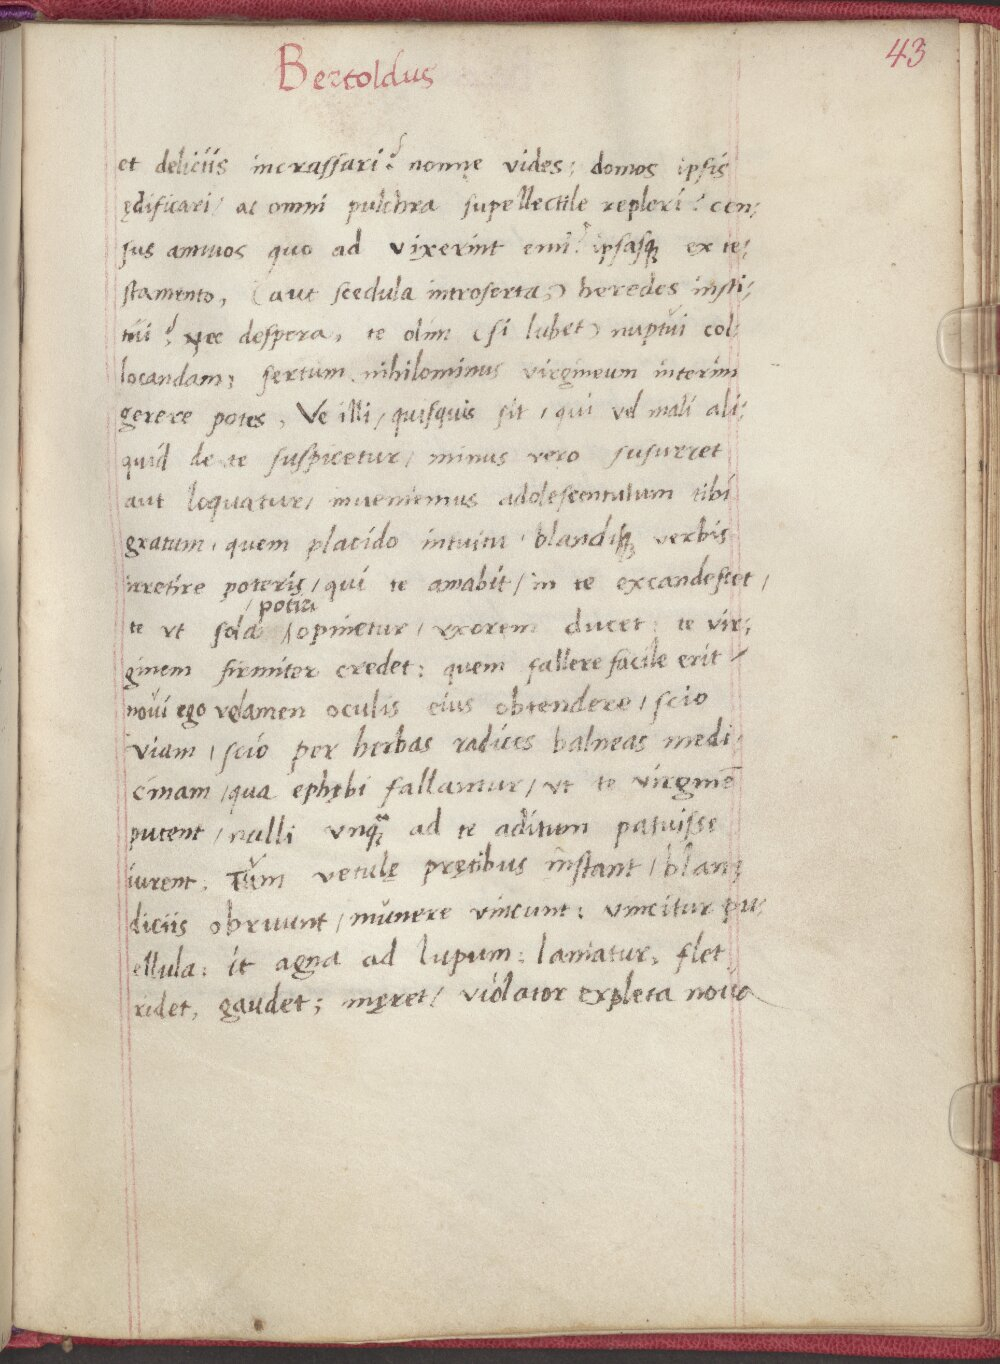 Bertoldus
43
et deliciis incrassari? nonne vides; domos ipsis
ędificari / ac omni pulchra supellectile repleri? cen;
sus annuos quo ad vixerint emi? ipsasq; ex te;
stamento, (aut scedula introserta,) heredes insti;
tui? Nec despera, te olim (si lubet) nuptui col;
locandam; sertum nihilominus virgineum interim
gerere potes, Ve illi / quisquis sit / qui vel mali ali;
quid de te suspicetur / minus vero susurret
aut loquatur / inueniemus adolescentulum tibi
gratum, quem placido intuitu, blandisq; verbis
irretire poteris / qui te amabit / in te excandescet /
/ potiri
te vt sola / opinetur / vxorem ducet: te vir;
ginem firmiter credet: quem fallere facile erit /
noui ego velamen oculis eius obtendere / scio
viam / scio per herbas radices balneas medi;
cinam / qua ephębi fallantur / vt te virginē
putent / nulli vnq̄ ad te aditum patuisse
iurent. Tum vetulę pręcibus instant / blan;
diciis obruunt / munere vincunt: vincitur pu;
ellula: it agna ad lupum: laniatur, flet
ridet, gaudet; męret / violator expleta noua